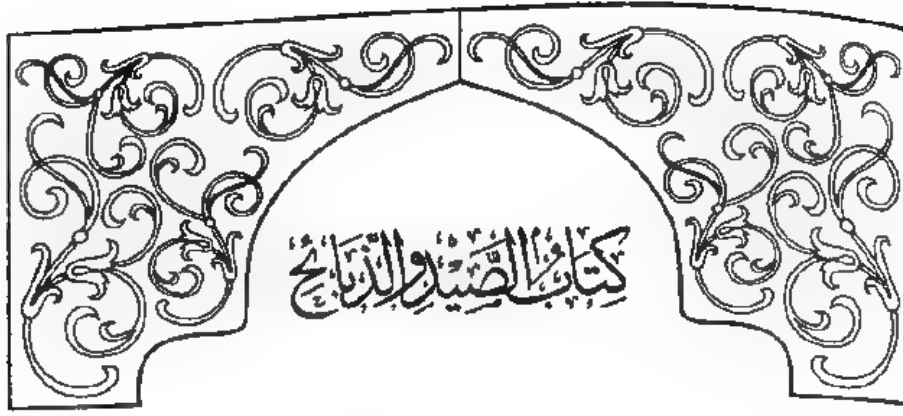 كِتَابُ الصَّيْدِ وَالذَّبَائِحِ